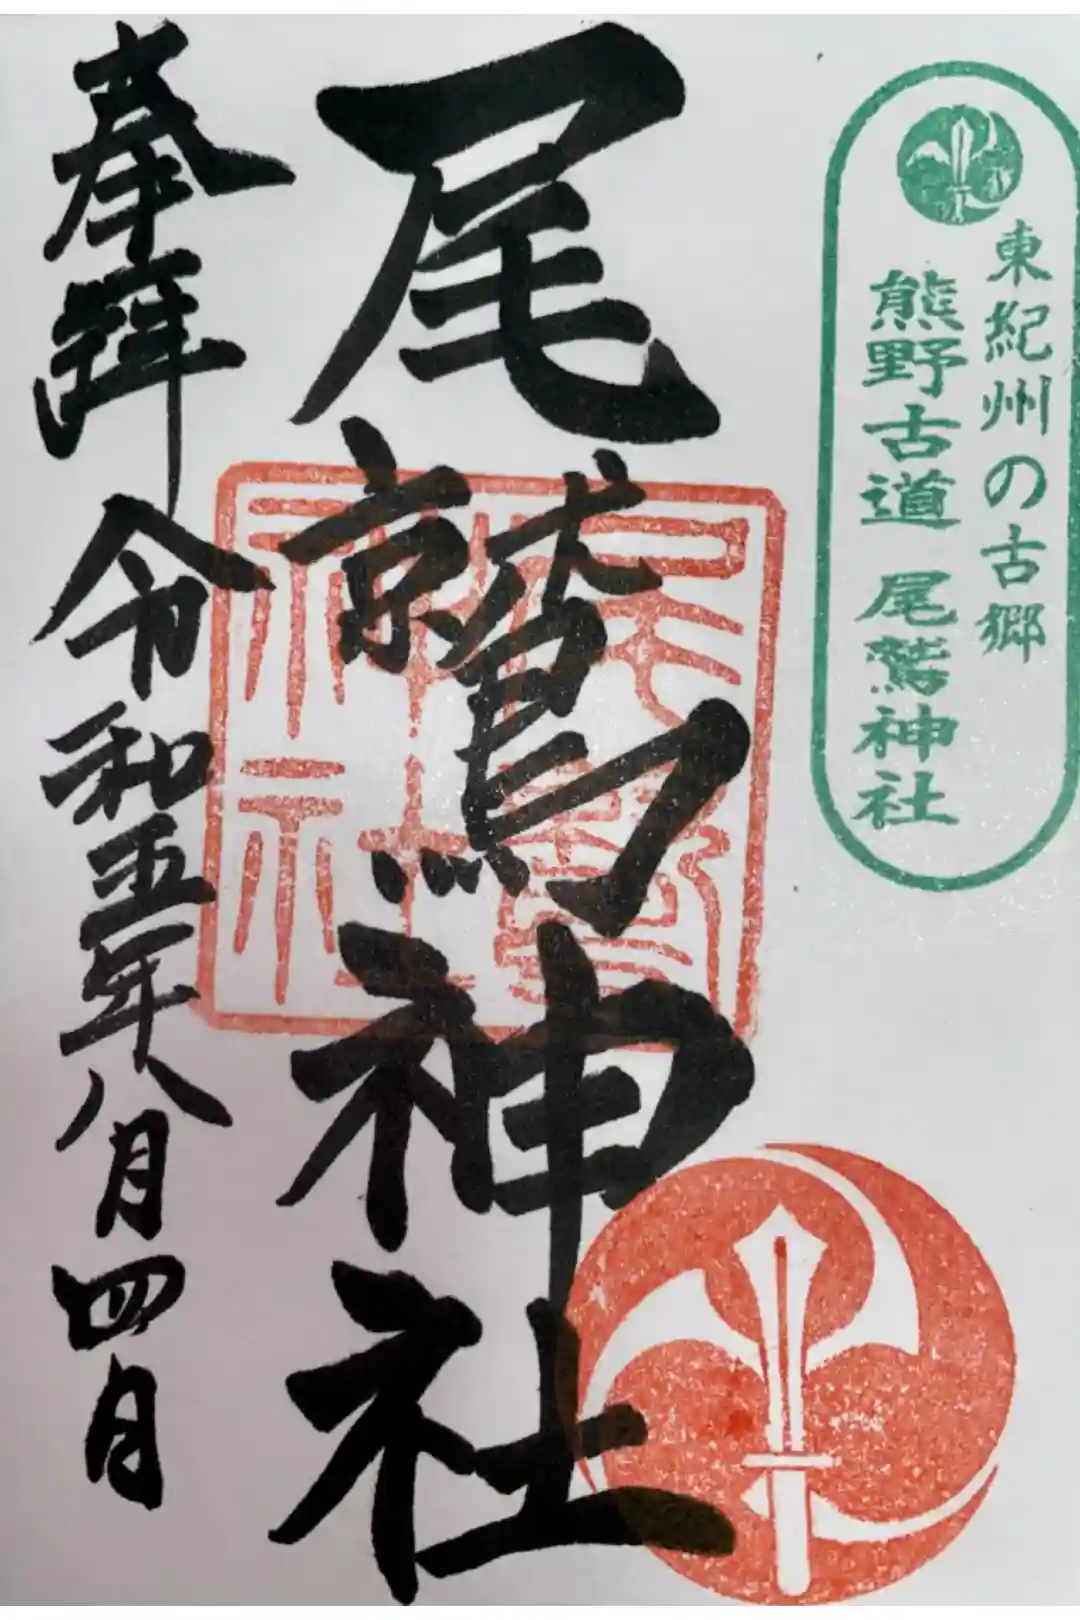 東紀州の古郷
熊野古道 尾鷲神社
尾鷲神社
尾鷲
神社
奉拝 令和五年八月四日